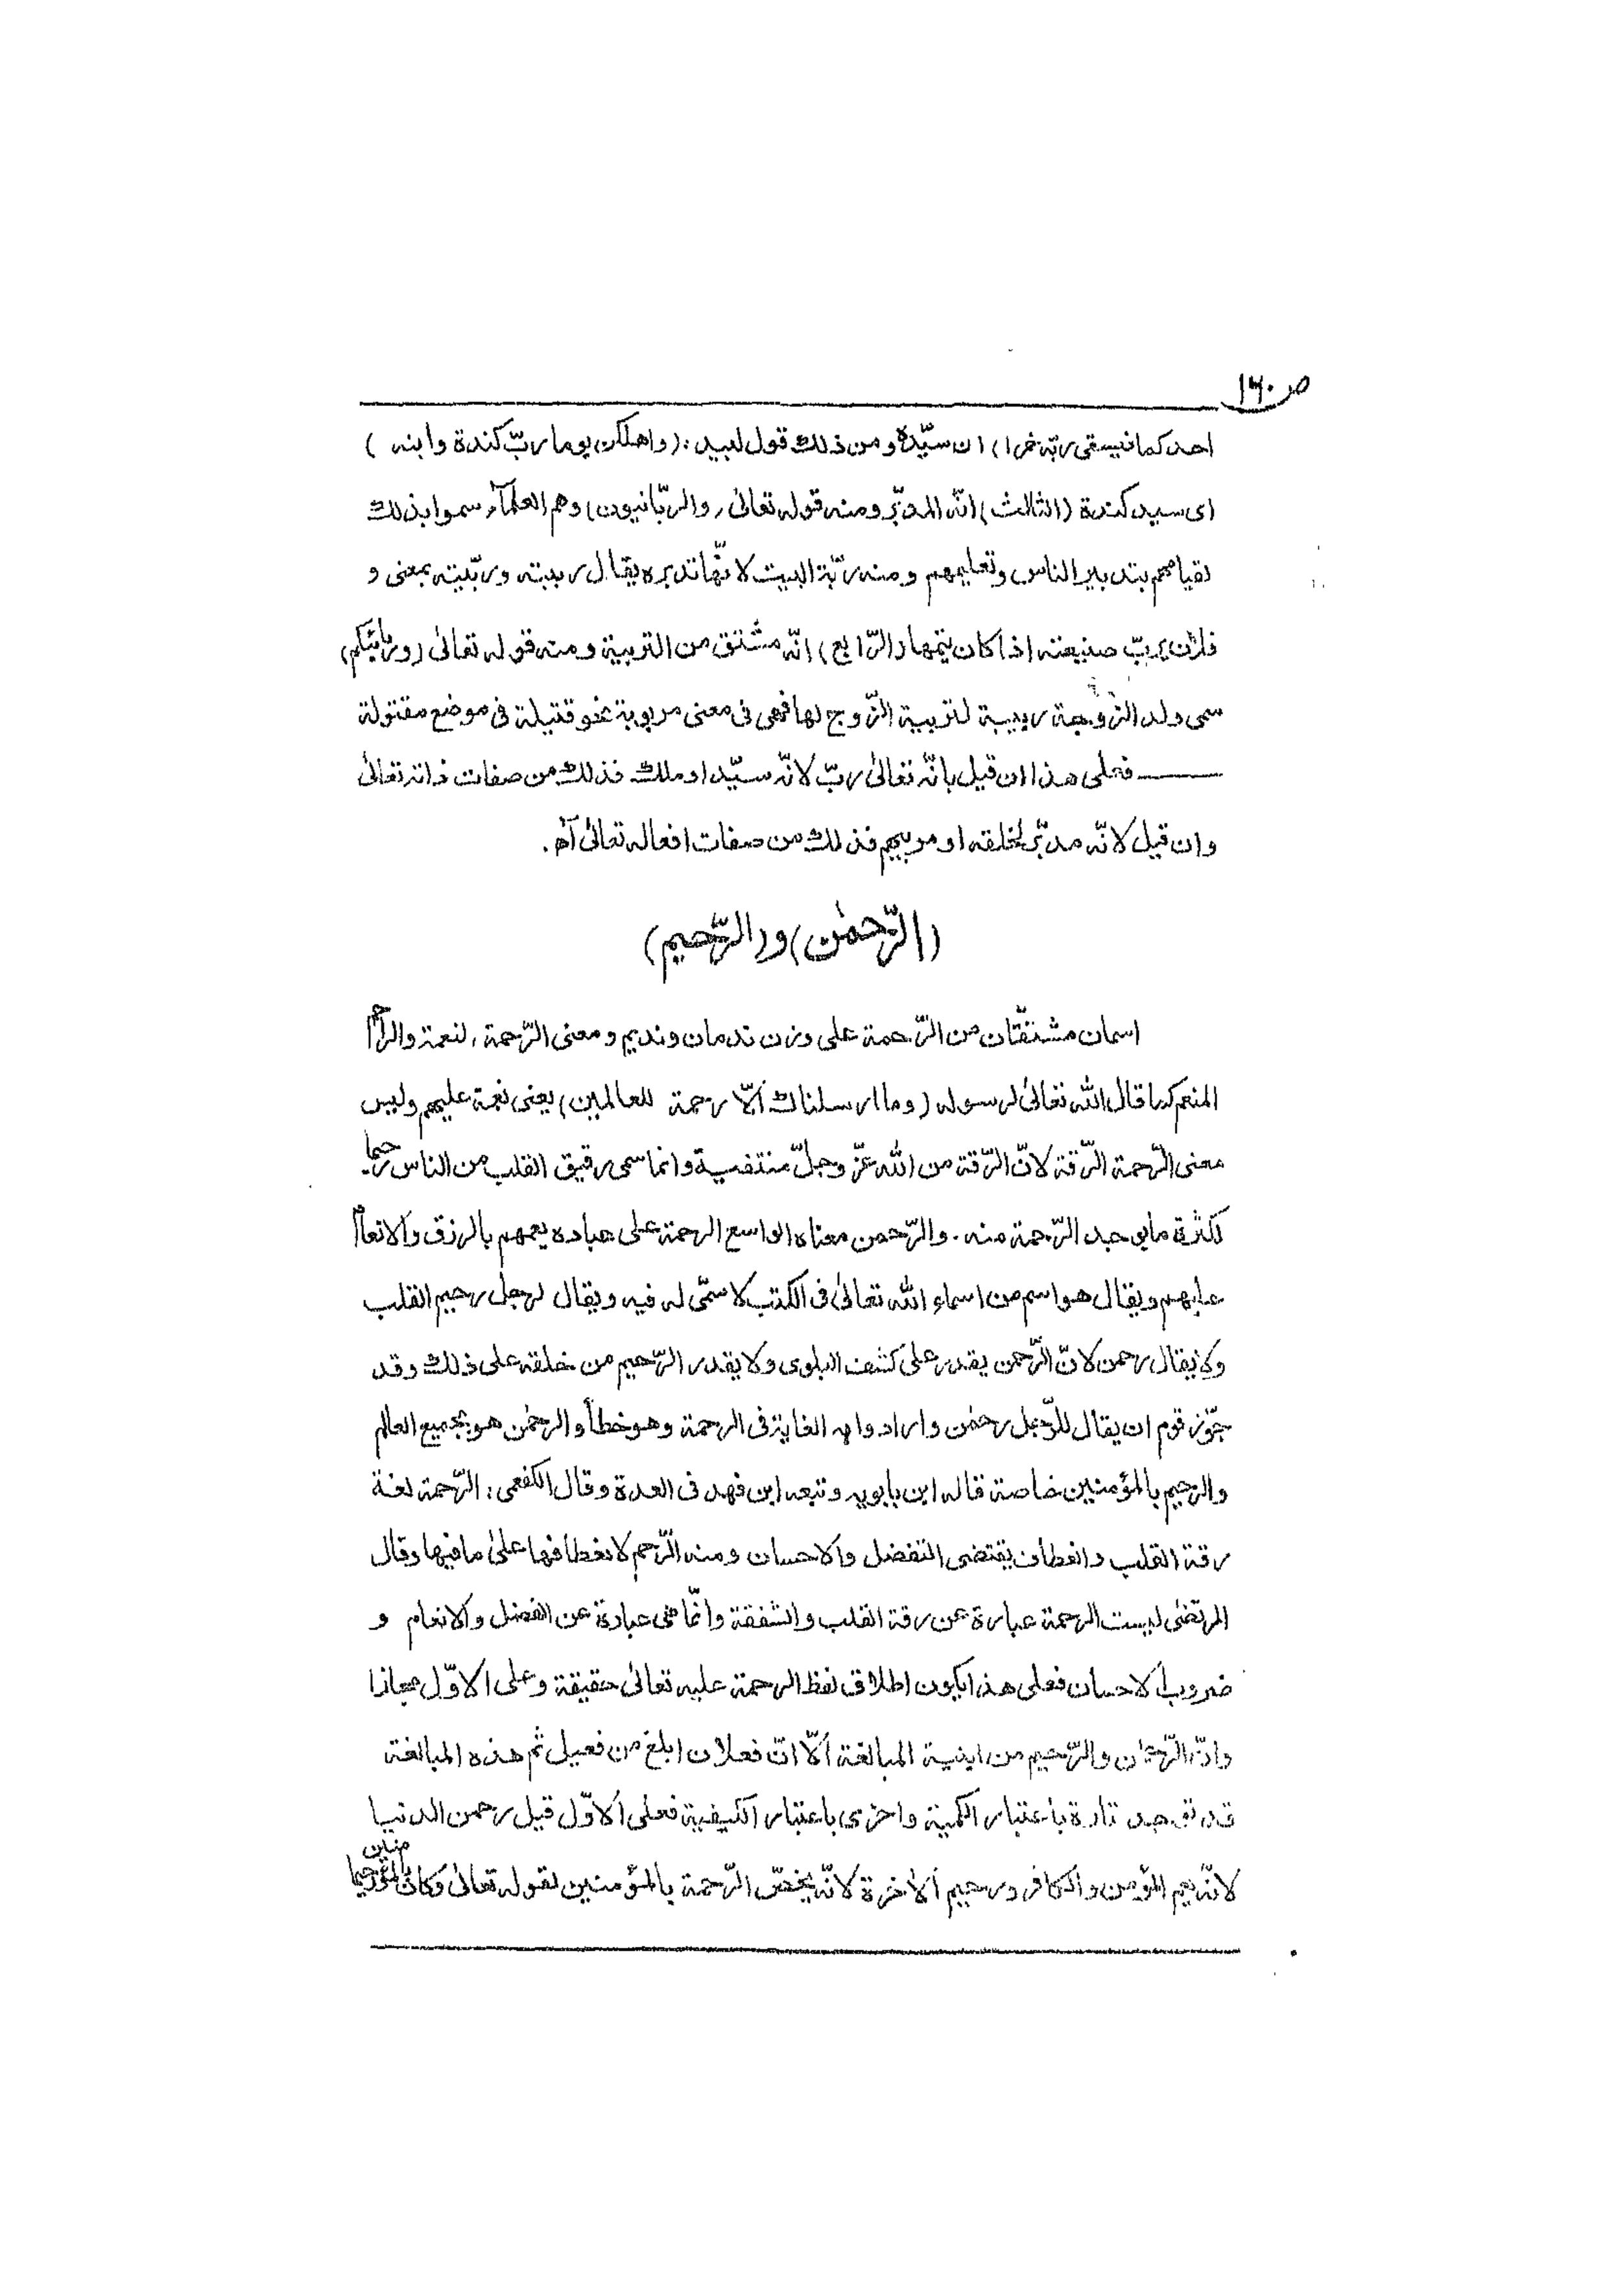 ص ١٦٠
احدكما فيسقى ربّه خمرا) اى سيّده ومن ذلك قول لبيد : (واهلكن يوما ربّ كندة وابنه )
اى سيد كندة (الثالث) انّه المدبّر ومنه قوله تعالى (والربّانيون) وهم العلماء سموا بذلك
لقيامهم بتدبير الناس وتعليمهم ومنه ربّة البيت لانّها تدبره يقال ربيته وربّيته بمعنى و
فلان يربّ صنيعته اذا كان يتمها (الرّابع) انّه مشتق من التربية ومنه قوله تعالى (وربائبكم)
سمى ولد الزّوجة ربيبة لتربية الزّوج لها فهى فى معنى مربوبة نحو قتيلة فى موضع مقتولة
ــــــ فعلى هذا ان قيل بانّه تعالى ربّ لانّه سيّد او ملك فذلك من صفات ذاته تعالى
وان قيل لانّه مدبّر لخلقه او مربيهم فذلك من صفات افعاله تعالى آه .
(الرّحمٰن) و (الرّحيم)
اسمان مشتقّان من الرّحمة على وزن ندمان ونديم ومعنى الرّحمة النعمة والراحم
المنعم كما قال الله تعالى لرسوله (وما ارسلناك الّا رحمة للعالمين) يعنى نعمة عليهم وليس
معنى الرّحمة الرّقة لانّ الرّقة من الله عزّ وجلّ منتفية وانما سمى رقيق القلب من الناس رحيما
لكثرة ما يوجد الرّحمة منه . والرّحمن معناه الواسع الرحمة على عباده يعمهم بالرزق والانعام
عليهم ويقال هو اسم من اسماء الله تعالى فى الكتب لا سمّى له فيه ويقال لرجل رحيم القلب
ولا يقال رحمن لانّ الرّحمن يقدر على كشف البلوى ولا يقدر الرّحيم من خلقه على ذلك وقد
جوّز قوم ان يقال للرّجل رحمٰن وارادوا به الغاية فى الرحمة وهو خطأ والرحمٰن هو لجميع العالم
والرحيم بالمؤمنين خاصة قاله ابن بابويه وتبعه ابن فهد فى العدة وقال الكفعمى : الرّحمة لغة
رقة القلب وانعطاف يقتضى التفضل والاحسان ومنه الرّحم لانعطافها على ما فيها وقال
المرتضى ليست الرحمة عبارة عن رقة القلب والشفقة وانّما هى عبادة عن الفضل والانعام و
ضروب الاحسان فعلى هذا يكون اطلاق لفظ الرحمة عليه تعالى حقيقة وعلى الاوّل مجازا
وانّ الرّحمٰن والرّحيم من ابنية المبالغة الّا انّ فعلان ابلغ من فعيل ثم هذه المبالغة
قد توجد تارة باعتبار الكمية واخرى باعتبار الكيفية فعلى الاوّل قيل رحمن الدنيا
لانّه يعم المؤمن والكافر ورحيم الاخرة لانّه يخصّ الرّحمة بالمؤمنين لقوله تعالى وكان بالمؤمنين رحيما